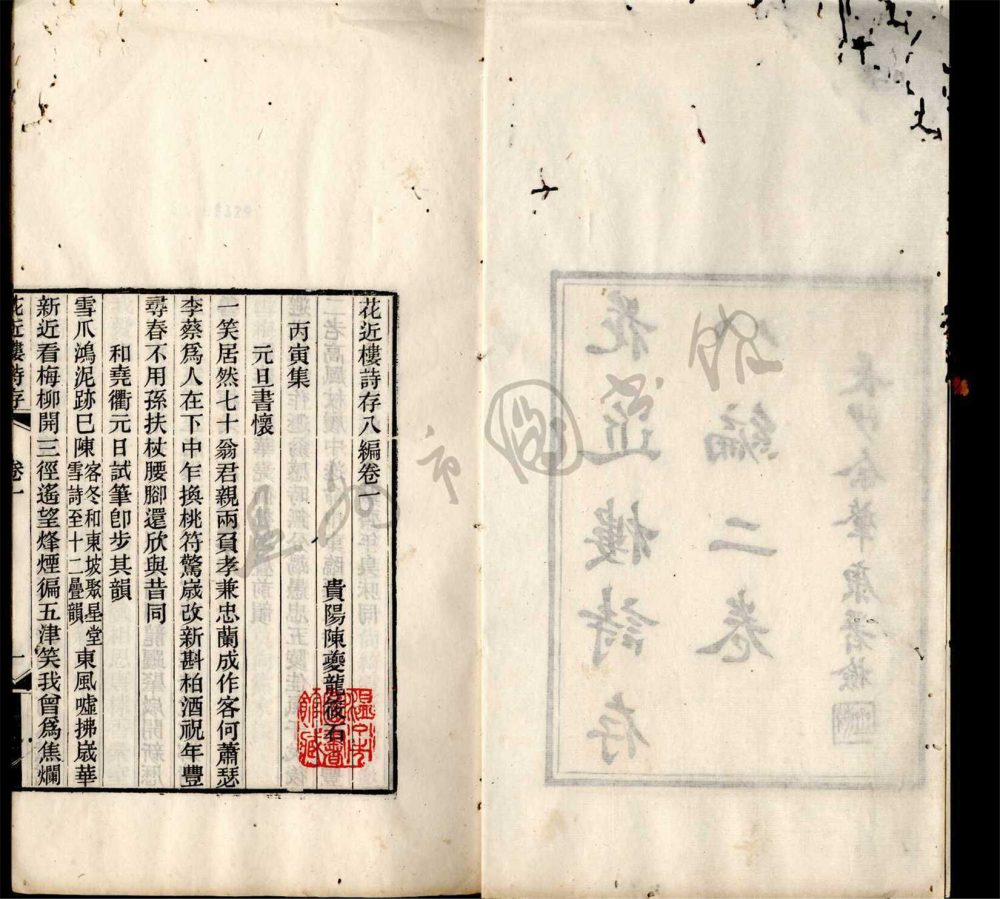 花近樓詩存八編卷一
貴陽陳夔龍筱石
丙寅集
元旦書懷
一笑居然七十翁君親兩負孝兼忠蘭成作客何蕭瑟
李蔡爲人在下中乍換桃符驚歲改新斟柏酒祝年豐
尋春不用孫扶杖腰腳還欣與昔同
和堯衢元日試筆卽步其韻
雪爪鴻泥跡已陳客冬和東坡聚星堂雪詩至十二疊韻東風噓拂歲華
新近看梅柳開三徑遙望烽煙徧五津笑我曾爲焦爛
花近樓詩存 卷一 一
花近樓詩存
八編二卷